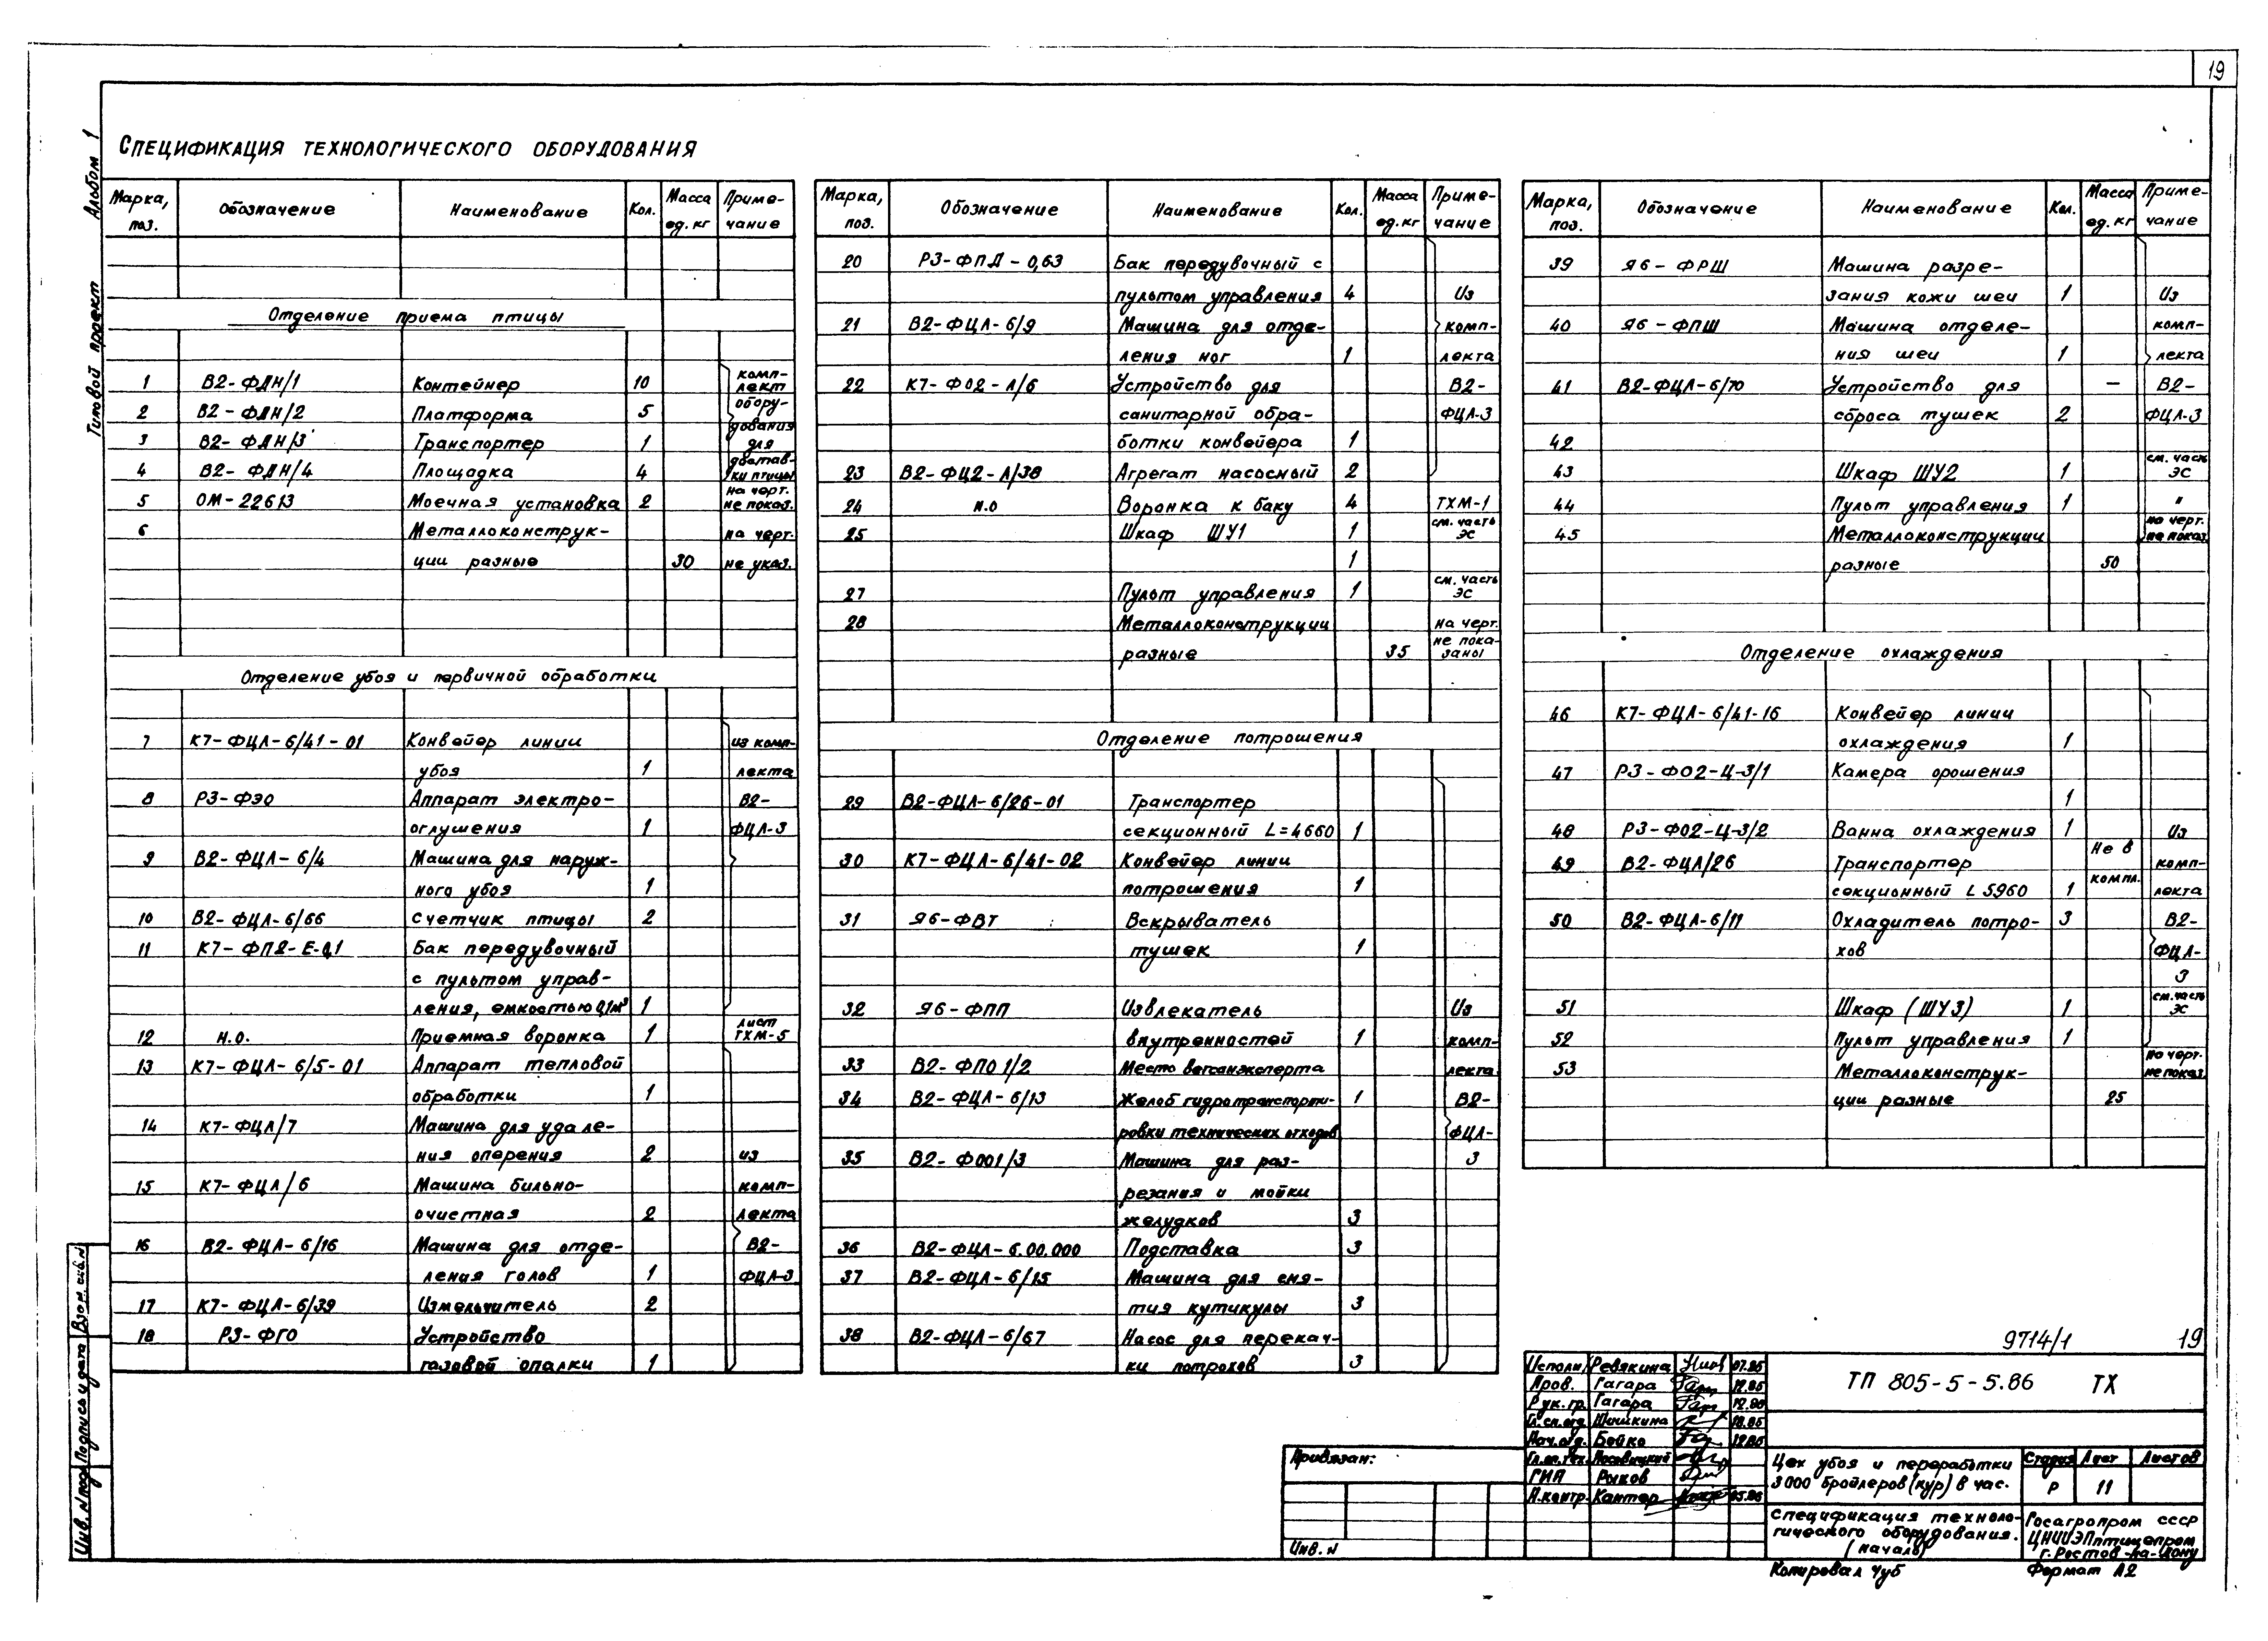 19
Альбом 1
Типовой проект
Спецификация технологического оборудования
Марка, поз. Обозначение Наименование Кол. Масса ед. кг Приме-чание
Отделение приема птицы
1 В2-ФДН/1 Контейнер 10 комп-
лект
2 В2-ФДН/2 Платформа 5 обору-
дования
3 В2-ФДН/3 Транспортер 1 для
4 В2-ФДН/4 Площадка 4 достав-
ки птицы
5 ОМ-22613 Моечная установка 2 на черт. не показ.
6 Металлоконструк- на черт.
ции разные 30 не указ.
Отделение убоя и первичной обработки
7 К7-ФЦЛ-6/41-01 Конвейер линии из комп-
убоя 1 лекта
8 РЗ-ФЭО Аппарат электро- В2-
оглушения 1 ФЦЛ-3
9 В2-ФЦЛ-6/4 Машина для наруж-
ного убоя 1
10 В2-ФЦЛ-6/66 Счетчик птицы 2
11 К7-ФП2-Е-0,1 Бак передувочный
с пультом управ-
ления, емкостью 0,1м³ 1
12 Н.О. Приемная воронка 1 лист ТХМ-5
13 К7-ФЦЛ-6/5-01 Аппарат тепловой
обработки 1
14 К7-ФЦЛ/7 Машина для удале-
ния оперения 2 из
15 К7-ФЦЛ/6 Машина бильно- комп-
очистная 2 лекта
16 В2-ФЦЛ-6/16 Машина для отде- В2-
ления голов 1 ФЦЛ-3
17 К7-ФЦЛ-6/39 Измельчитель 2
18 РЗ-ФГО Устройство
газовой опалки 1
Марка, поз. Обозначение Наименование Кол. Масса ед. кг Приме-чание
20 РЗ-ФПД-0,63 Бак передувочный с
пультом управления 4 Из
21 В2-ФЦЛ-6/9 Машина для отде- комп-
ления ног 1 лекта
22 К7-ФО2-Л/6 Устройство для В2-
санитарной обра- ФЦЛ-3
ботки конвейера 1
23 В2-ФЦ2-Л/38 Агрегат насосный 2
24 н.о Воронка к баку 4 ТХМ-1
25 Шкаф ШУ1 1 см. часть ЭС
1
27 Пульт управления 1 см. часть ЭС
28 Металлоконструкции на черт.
разные 35 не пока-
заны
Отделение потрошения
29 В2-ФЦЛ-6/26-01 Транспортер
секционный L=4660 1
30 К7-ФЦЛ-6/41-02 Конвейер линии
потрошения 1
31 Я6-ФВТ Вскрыватель
тушек 1
32 Я6-ФПП Извлекатель Из
внутренностей 1 комп-
33 В2-ФПО 1/2 Место ветсанэксперта лекта
34 В2-ФЦЛ-6/13 Желоб гидротранспорти- 1 В2-
ровки технических отходов ФЦЛ-
35 В2-ФОО1/3 Машина для раз- 3
резания и мойки
желудков 3
36 В2-ФЦЛ-6.00.000 Подставка 3
37 В2-ФЦЛ-6/15 Машина для сня-
тия кутикулы 3
38 В2-ФЦЛ-6/67 Насос для перекач-
ки потрохов 3
Марка, поз. Обозначение Наименование Кол. Масса ед. кг Приме-чание
39 Я6-ФРШ Машина разре-
зания кожи шеи 1 Из
40 Я6-ФПШ Машина отделе- комп-
ния шеи 1 лекта
41 В2-ФЦЛ-6/70 Устройство для — В2-
сброса тушек 2 ФЦЛ-3
42
43 Шкаф ШУ2 1 см. часть ЭС
44 Пульт управления 1 "
45 Металлоконструкции на черт. не показ.
разные 50
Отделение охлаждения
46 К7-ФЦЛ-6/41-16 Конвейер линии
охлаждения 1
47 РЗ-ФО2-Ц-3/1 Камера орошения
1
48 РЗ-ФО2-Ц-3/2 Ванна охлаждения 1 Из
49 В2-ФЦЛ/26 Транспортер Не в комп-
секционный L 5960 1 компл. лекта
50 В2-ФЦЛ-6/11 Охладитель потро- 3 В2-
хов ФЦЛ-
3
51 Шкаф (ШУ3) 1 см. часть ЭС
52 Пульт управления 1
53 Металлоконструк- на черт. не показ.
ции разные 25
9714/1 19
Исполн. Ревякина 07.85
Пров. Гагара 12.85
Рук. гр. Гагара
Гл. сп. отд. Шишкина
Нач. отд. Бойко
Гл. сп. тех.
ГИП Рыков
Н. контр. Кантер
ТП 805-5-5.86 ТХ
Цех убоя и переработки
3000 бройлеров (кур) в час.
Стадия Лист Листов
Р 11
Спецификация техноло-
гического оборудования.
(начало)
Госагропром СССР
ЦНИИЭПптицепром
г. Ростов-на-Дону
Привязан:
Инв. N
Копировал Чуб Формат А2
Взам. инв. N
Подпись и дата
Инв. N подл.